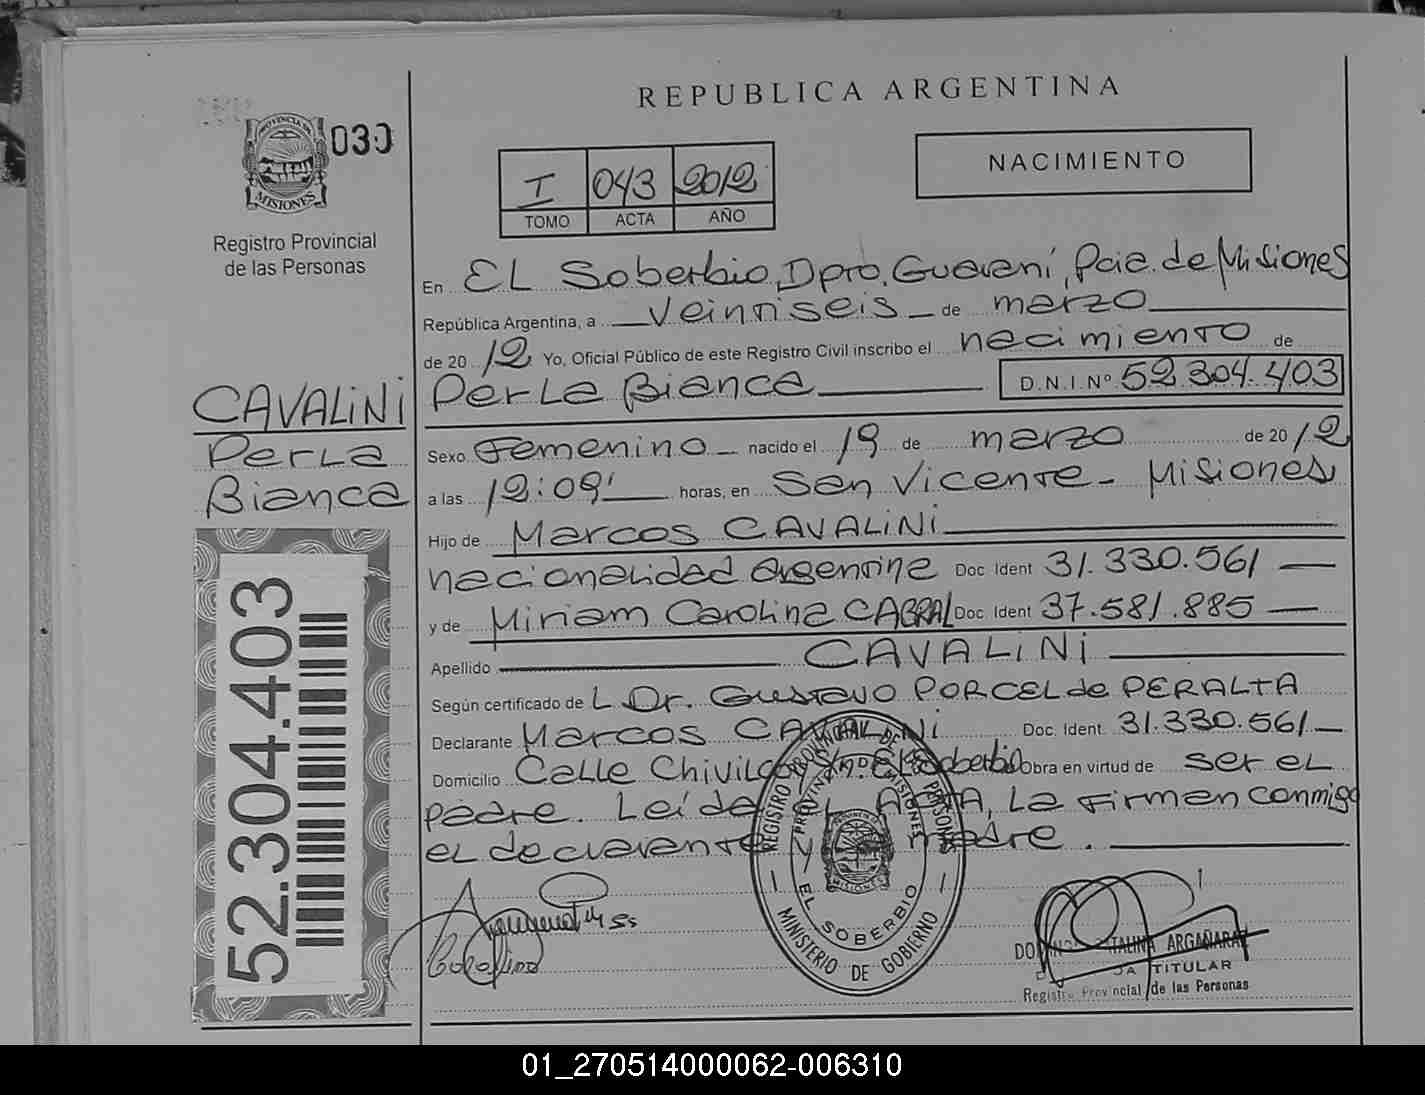 REPUBLICA ARGENTINA
PROVINCIA DE MISIONES
030
Registro Provincial
de las Personas
I 043 2012
TOMO ACTA AÑO
NACIMIENTO
En EL Soberbio, Dpto. Guaraní, Pcia. de Misiones
República Argentina, a veintiseis de marzo
de 2012 Yo, Oficial Público de este Registro Civil inscribo el nacimiento de
PerLa Bianca D.N.I.Nº 52.304.403
CAVALiNi
PerLa
Bianca
52.304.403
Sexo Femenino nacido el 19 de marzo de 2012
a las 12:09' horas, en San Vicente - Misiones
Hijo de Marcos CAVALiNi
nacionalidad argentina Doc Ident 31.330.561
y de Miriam Carolina CABRAL Doc Ident 37.581.885
Apellido CAVALiNi
Según certificado de L Dr. Gustavo PORCEL de PERALTA
Declarante Marcos CAVALiNi Doc. Ident. 31.330.561
Domicilio Calle Chivilcoy El Soberbio Obra en virtud de ser el
padre. Leída el ACTA, La firman conmigo
el declarante y la madre.
REGISTRO PROVINCIAL DE LAS PERSONAS
PROVINCIA DE MISIONES
EL SOBERBIO
MINISTERIO DE GOBIERNO
ARGAÑARAZ
TITULAR
Registro Provincial de las Personas
01_270514000062-006310